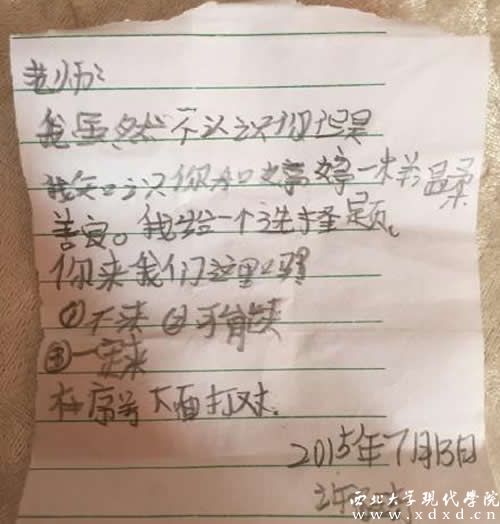 老师:
我虽然不认识你但是
我知识你和文婷婷一样温柔
善良。我给一个选择题。
你来我们这里吗
①不来 ②可能来
③一定来
在序号下面打对.
2015年7月13日
许
西北大学现代学院
www.xdxd.cn